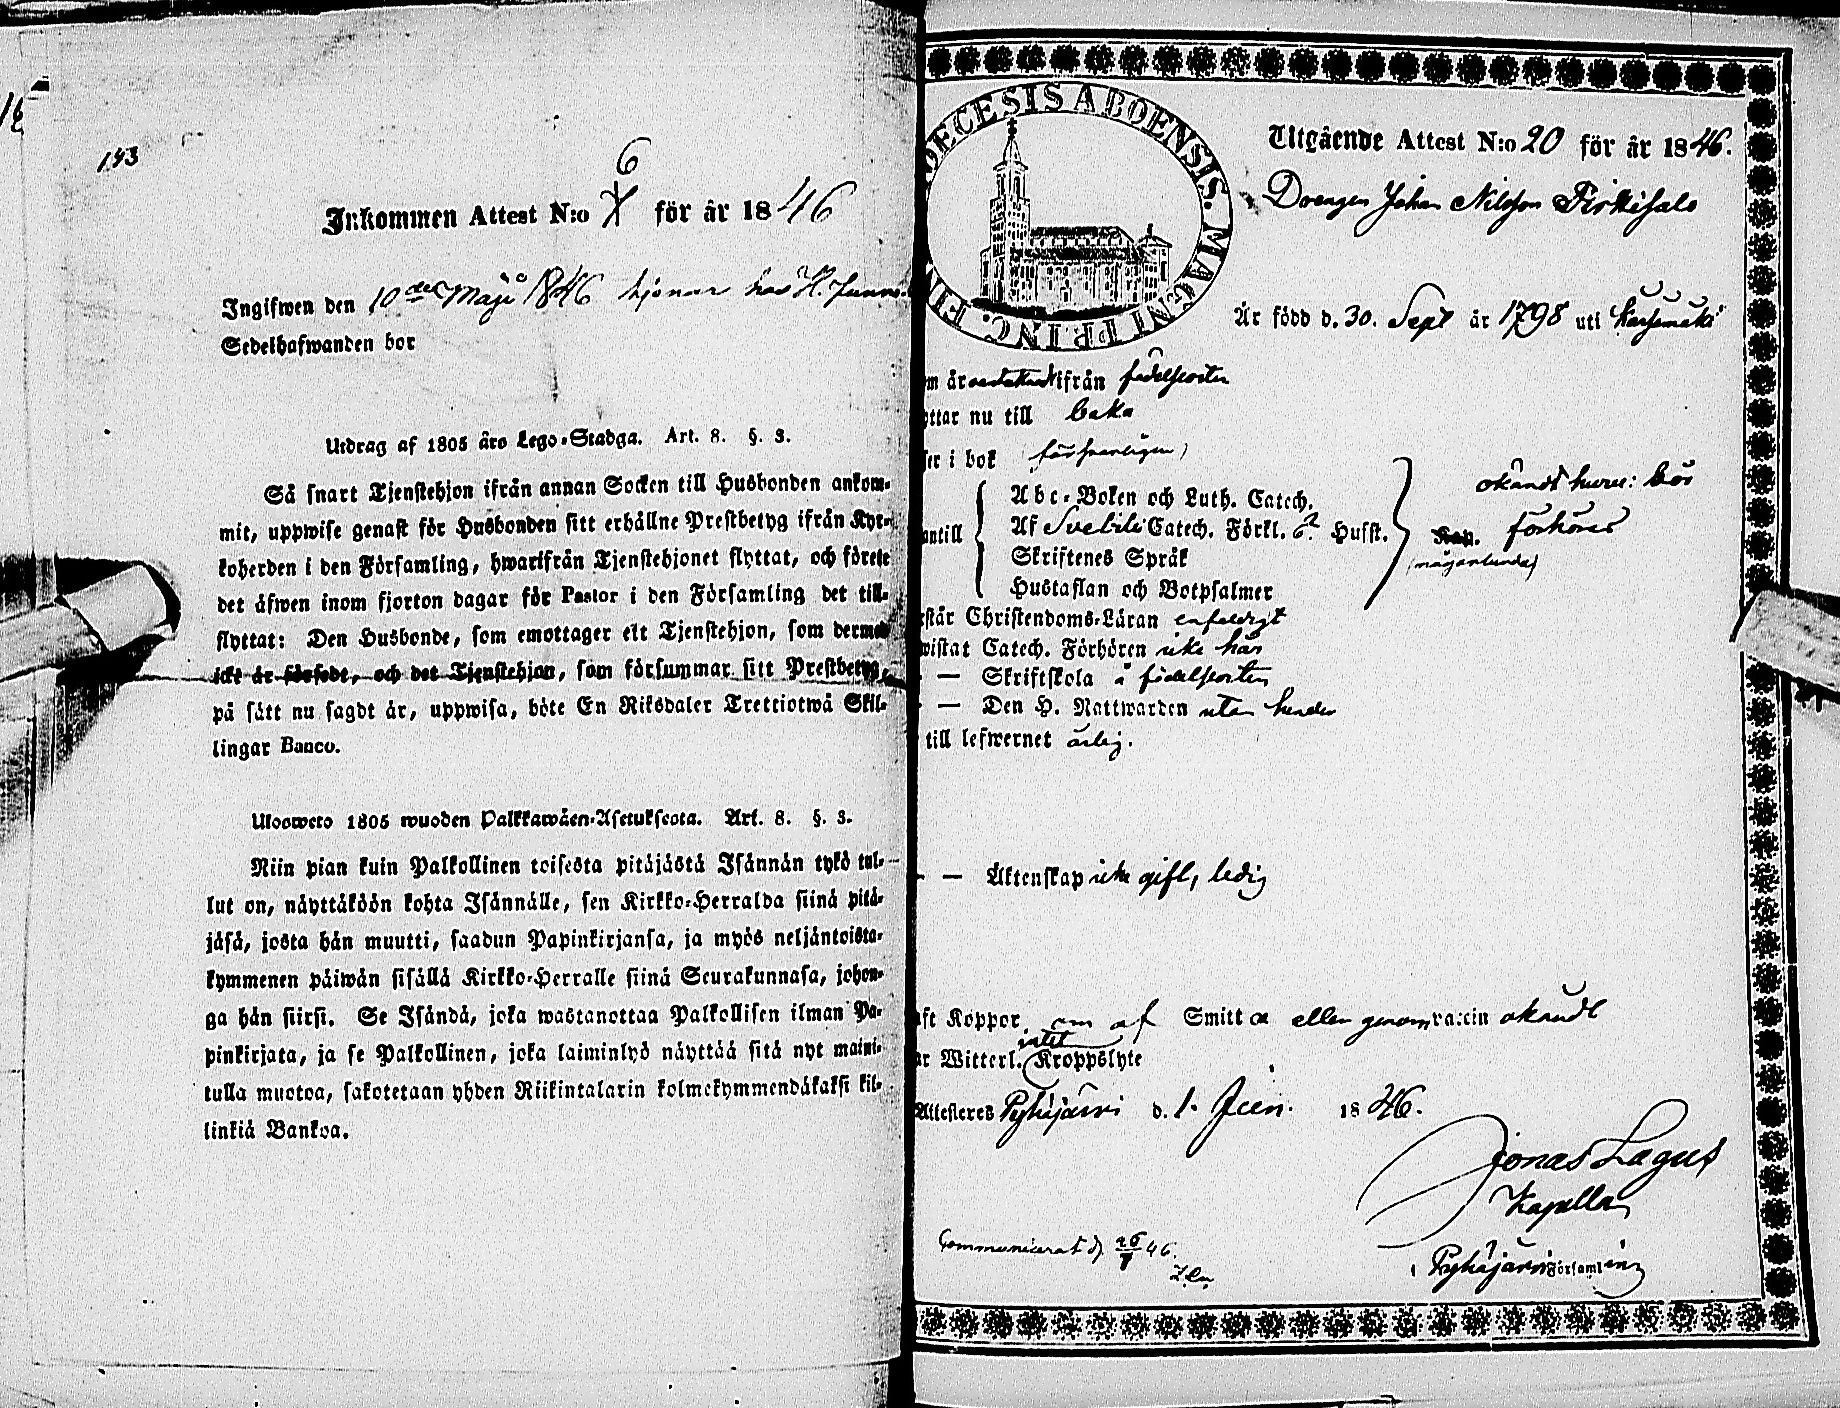 143
Inkommen Attest N:o 6 för år 1846
Ingifwen den 10de Maji 1846 tjenar hos H.
Sedelhafwanden bor
Utdrag af 1805 års Lego-Stadga. Art. 8. §. 3.
Så snart Tjenstehjon ifrån annan Socken till Husbonden ankom-
mit, uppwise genast för Husbonden sitt erhållne Prestbetyg ifrån Kyr-
koherden i den Församling, hwarifrån Tjenstehjonet flyttat, och förete
det äfwen inom fjorton dagar för Pastor i den Församling det till-
flyttat: Den Husbonde, som emottager ett Tjenstehjon, som dermed
icke är försedt, och det Tjenstehjon, som försummar sitt Prestbetyg,
på sätt nu sagdt är, uppwisa, böte En Riksdaler Trettiotwå Skil-
lingar Banco.
Ulosweto 1805 wuoden Palkkawäen-Asetuksesta. Art. 8. §. 3.
Niin pian kuin Palkollinen toisesta pitäjästä Isännän tykö tul-
lut on, näyttäköön kohta Isännälle, sen Kirkko-Herralda siinä pitä-
jäsä, josta hän muutti, saadun Papinkirjansa, ja myös neljäntoista-
kymmenen päiwän sisällä Kirkko-Herralle siinä Seurakunnasa, johon-
ga hän siirsi. Se Isändä, joka wastanottaa Palkollisen ilman Pa-
pinkirjata, ja se Palkollinen, joka laiminlyö näyttää sitä nyt maini-
tulla muotoa, sakotetaan yhden Riikintalarin kolmekymmendäkaksi kil-
linkiä Bankoa.
DECESIS ABOENSIS. MAGNI PRINC. FIN
Utgående Attest N:o 20 för år 1846.
Drengen Johan Nilsson Pirkisalo
Är född d. 30. Sept år 1798 uti Kärsemäki
m är ifrån födelseorten
ttar nu till baka
er i bok (försvarligen)
antill
Abc-Boken och Luth. Catech.
Af Svebili Catech. Förkl. o. Husst.
Skriftenes Språk
Hustaflan och Botpsalmer
okändt huru: bör
förhöras
(någorlunda)
står Christendoms-Läran enfaldigt
wistat Catech. Förhören icke här
— Skriftskola å födelseorten
— Den H. Nattwarden utan hinder
till lefwernet ärlig.
— Äktenskap icke gift, ledig
ft Koppor om af Smitta eller genom vaccin okändt
r Witterl. intet Kroppslyte
Attesteras Pyhäjärvi d. 1. Juni. 1846.
Jonas Lagus
Kapellan
i Pyhäjärvi Församling
Communicerat d. 26/7 46.